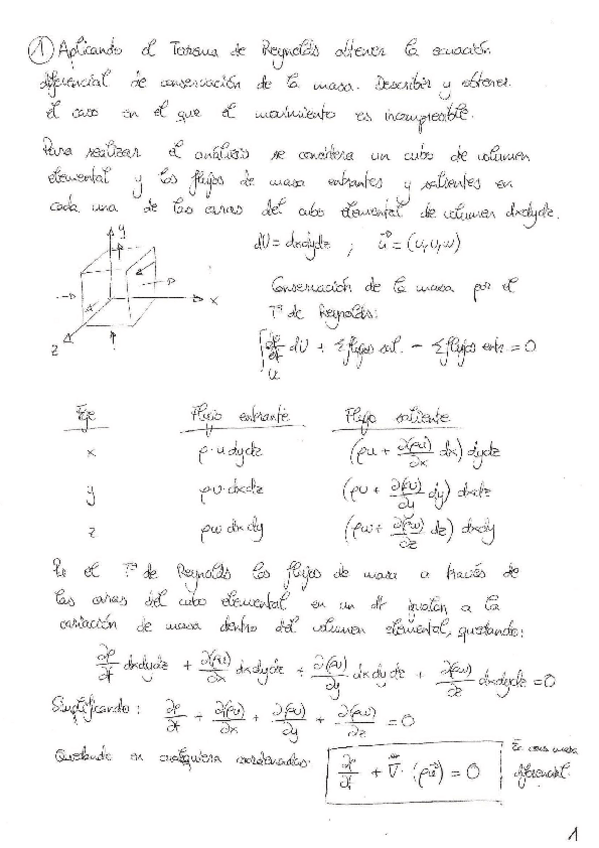 ① Aplicando el Teorema de Reynolds obtener la ecuación
diferencial de conservación de la masa. Describir y obtener
el caso en el que el movimiento es incompresible.
Para realizar el análisis se considera un cubo de volumen
elemental y los flujos de masa entrantes y salientes en
cada una de las caras del cubo elemental de volumen dxdydz.
y
x
z
dU = dxdydz ; u⃗ = (u,v,w)
Conservación de la masa por el
Tª de Reynolds:
∫ ∂ρ/∂t dU + Σflujos sal. - Σflujos entr. = 0
Eje Flujo entrante Flujo saliente
x ρ·u dydz (ρu + ∂(ρu)/∂x dx) dydz
y ρv·dxdz (ρv + ∂(ρv)/∂y dy) dxdz
z ρw dxdy (ρw + ∂(ρw)/∂z dz) dxdy
Por el Tª de Reynolds los flujos de masa a través de
las caras del cubo elemental en un dt igualan a la
variación de masa dentro del volumen elemental, quedando:
∂ρ/∂t dxdydz + ∂(ρu)/∂x dxdydz + ∂(ρv)/∂y dxdydz + ∂(ρw)/∂z dxdydz = 0
Simplificando: ∂ρ/∂t + ∂(ρu)/∂x + ∂(ρv)/∂y + ∂(ρw)/∂z = 0
Quedando en cualquiera coordenadas: ∂ρ/∂t + ∇⃗·(ρu⃗) = 0
Ec cons masa
diferencial.
1